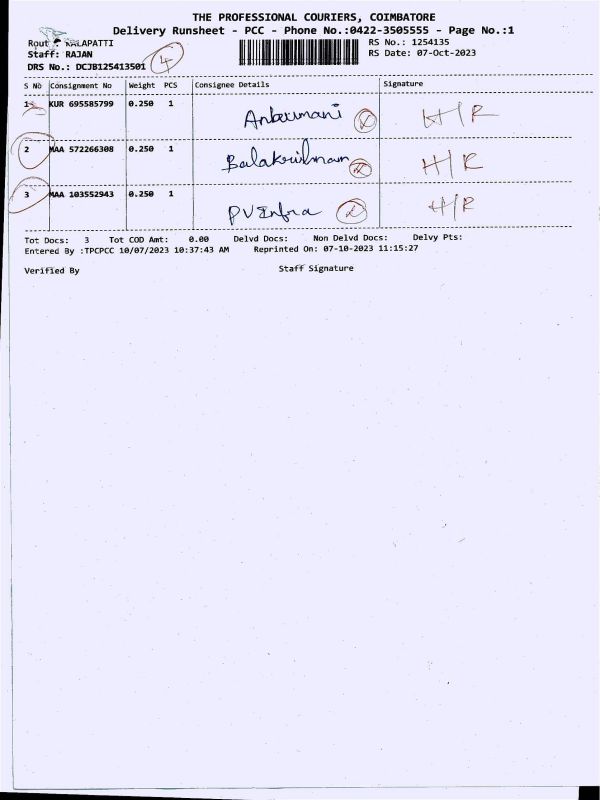 THE PROFESSIONAL COURIERS, COIMBATORE
Delivery Runsheet - PCC - Phone No.:0422-3505555 - Page No.:1
Rout : KALAPATTI
RS No.: 1254135
Staff: RAJAN
4
RS Date: 07-Oct-2023
DRS No.: DCJB125413501
S No Consignment No Weight PCS Consignee Details Signature
1 KUR 695585799 0.250 1
Anbumani H/R
2 MAA 572266308 0.250 1
Balakrishnan H/R
3 MAA 103552943 0.250 1
PV Infra H/R
Tot Docs: 3 Tot COD Amt: 0.00 Delvd Docs: Non Delvd Docs: Delvy Pts:
Entered By :TPCPCC 10/07/2023 10:37:43 AM Reprinted On: 07-10-2023 11:15:27
Verified By Staff Signature